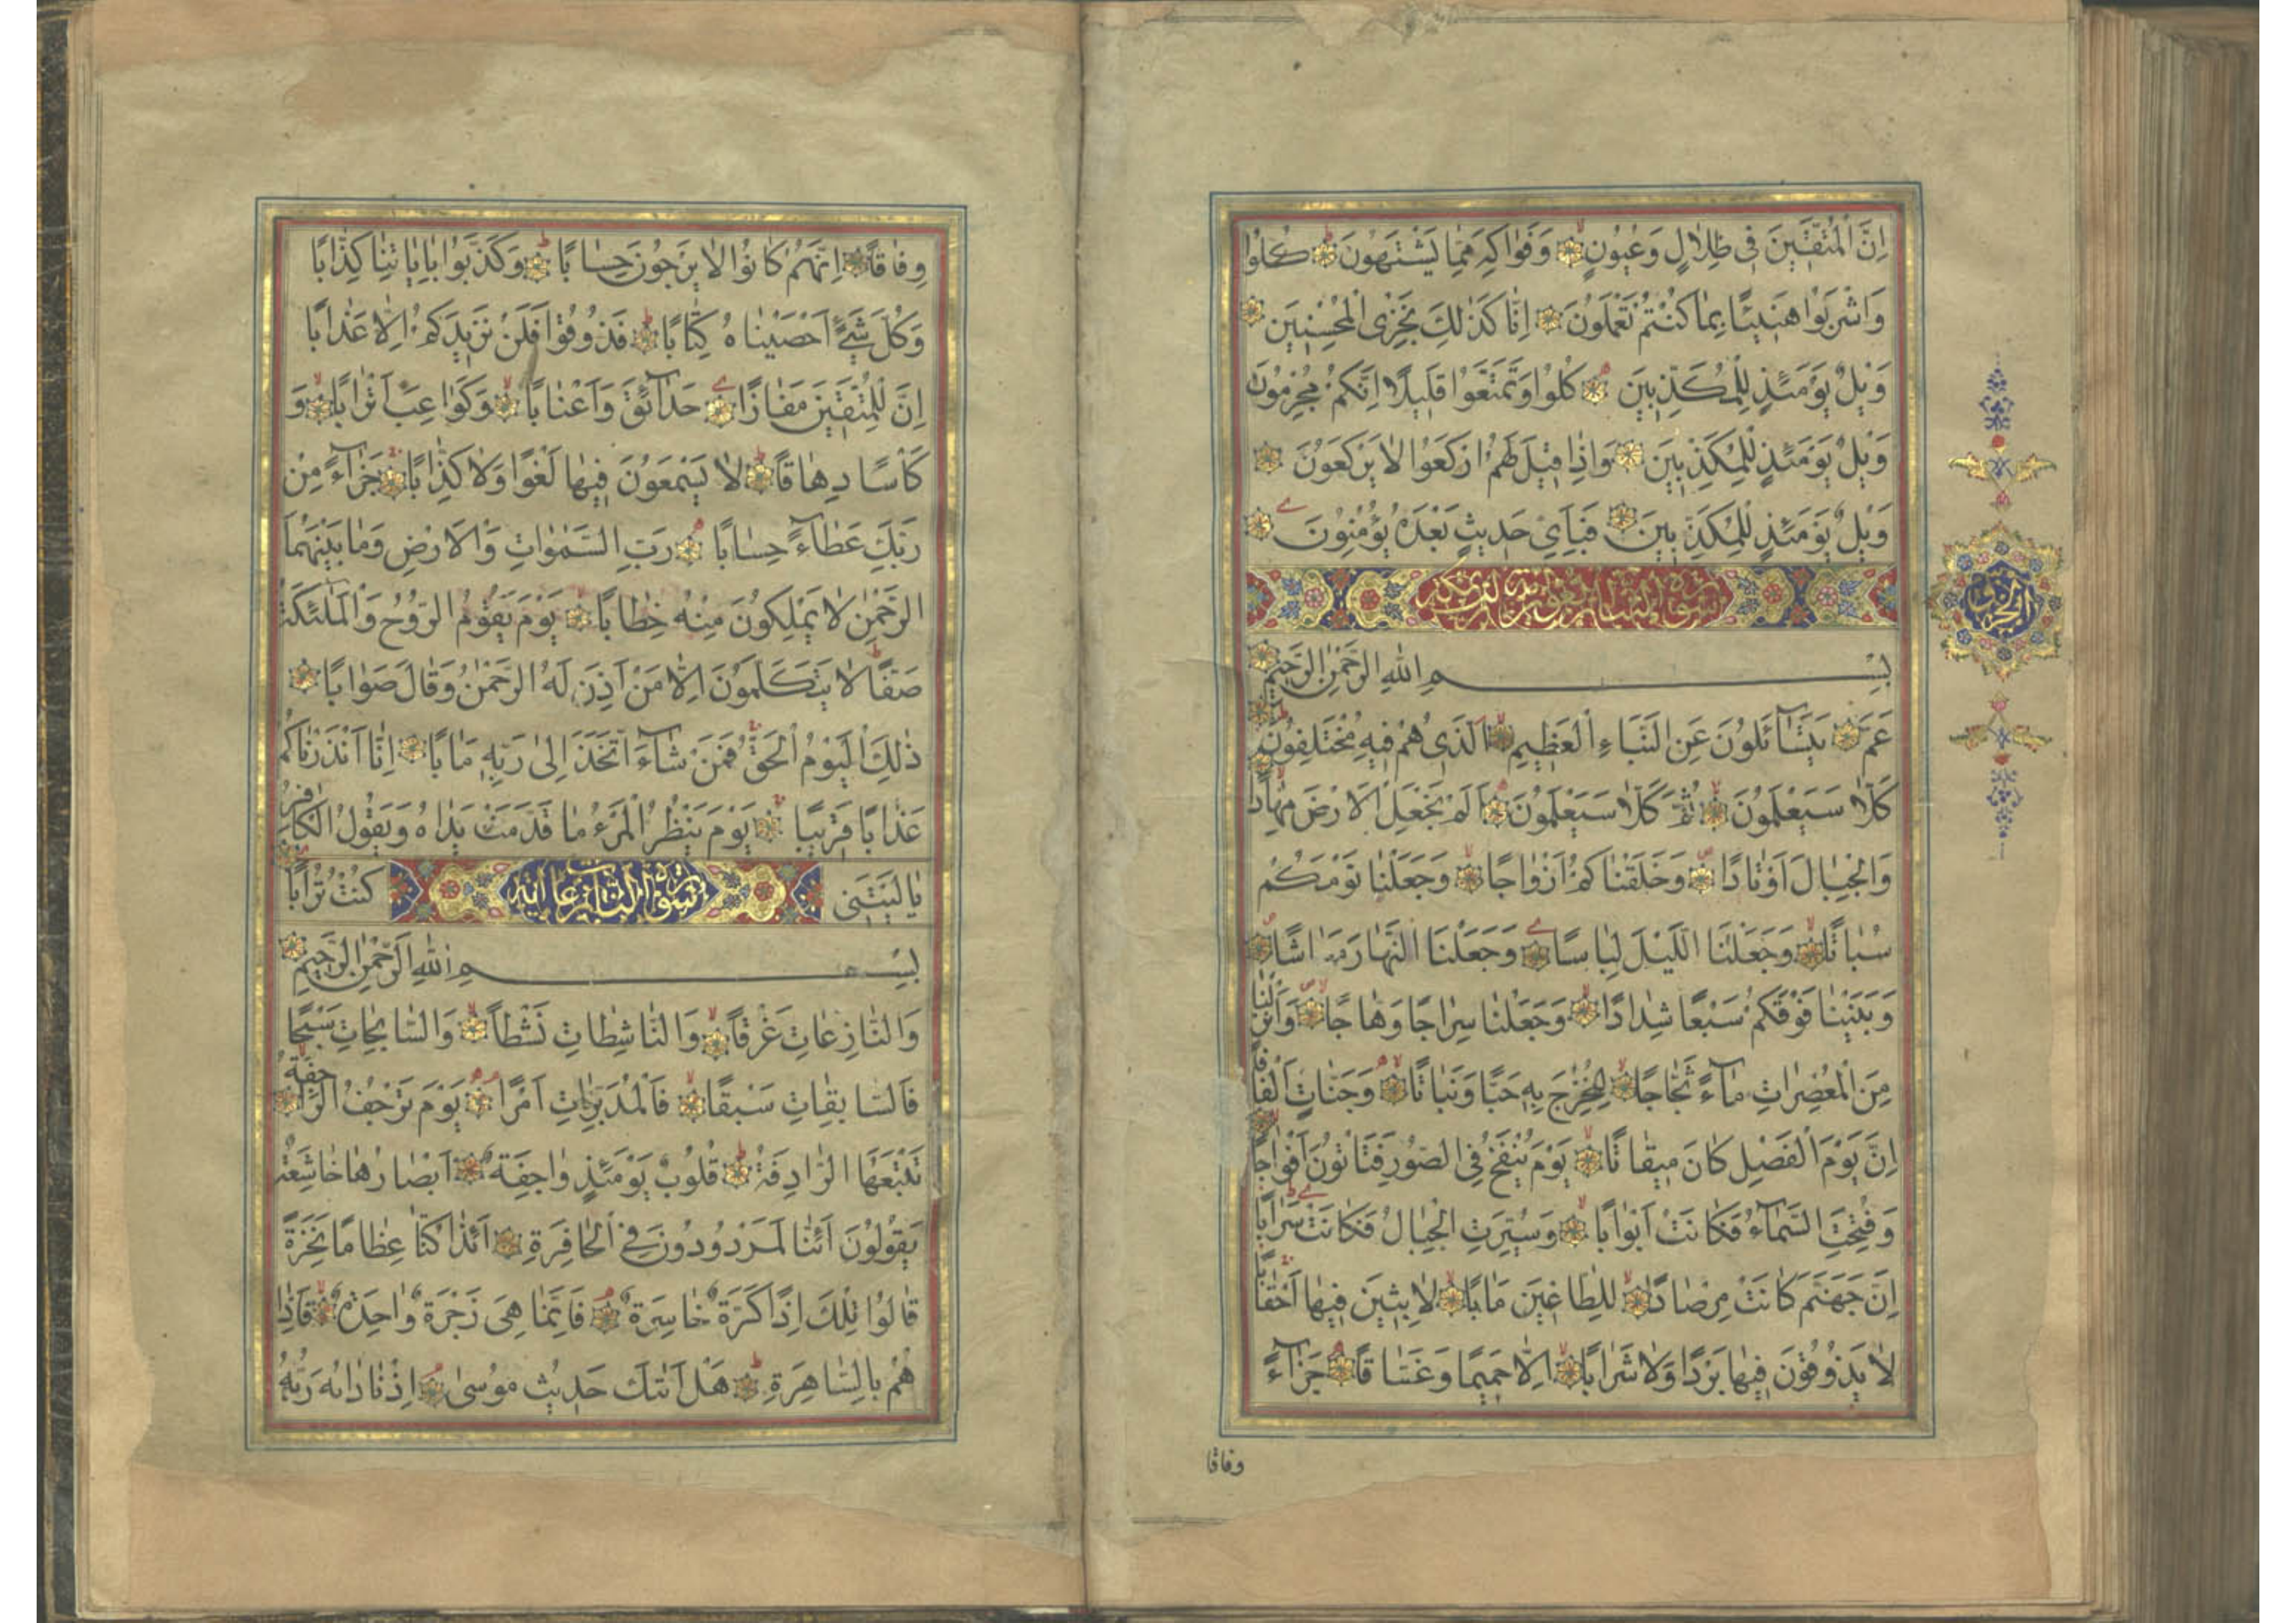 اِنَّ الْمُتَّقٖينَ فٖى ظِلَالٍ وَعُيُونٍ وَفَوَاكِهَ مِمَّا يَشْتَهُونَ كُلُوا
وَاشْرَبُوا هَنٖيـًٔا بِمَا كُنْتُمْ تَعْمَلُونَ اِنَّا كَذٰلِكَ نَجْزِى الْمُحْسِنٖينَ
وَيْلٌ يَوْمَئِذٍ لِلْمُكَذِّبٖينَ كُلُوا وَتَمَتَّعُوا قَلٖيلًا اِنَّكُمْ مُجْرِمُونَ
وَيْلٌ يَوْمَئِذٍ لِلْمُكَذِّبٖينَ وَاِذَا قٖيلَ لَهُمُ ارْكَعُوا لَا يَرْكَعُونَ
وَيْلٌ يَوْمَئِذٍ لِلْمُكَذِّبٖينَ فَبِاَىِّ حَدٖيثٍ بَعْدَهُ يُؤْمِنُونَ
الجزء
بِسْمِ اللّٰهِ الرَّحْمٰنِ الرَّحٖيمِ
عَمَّ يَتَسَٓائَلُونَ عَنِ النَّبَاءِ الْعَظٖيمِ اَلَّذٖى هُمْ فٖيهِ مُخْتَلِفُونَ
كَلَّا سَيَعْلَمُونَ ثُمَّ كَلَّا سَيَعْلَمُونَ اَلَمْ نَجْعَلِ الْاَرْضَ مِهَادًا
وَالْجِبَالَ اَوْتَادًا وَخَلَقْنَاكُمْ اَزْوَاجًا وَجَعَلْنَا نَوْمَكُمْ
سُبَاتًا وَجَعَلْنَا الَّيْلَ لِبَاسًا وَجَعَلْنَا النَّهَارَ مَعَاشًا
وَبَنَيْنَا فَوْقَكُمْ سَبْعًا شِدَادًا وَجَعَلْنَا سِرَاجًا وَهَّاجًا وَاَنْزَلْنَا
مِنَ الْمُعْصِرَاتِ مَٓاءً ثَجَّاجًا لِنُخْرِجَ بِهٖ حَبًّا وَنَبَاتًا وَجَنَّاتٍ اَلْفَافًا
اِنَّ يَوْمَ الْفَصْلِ كَانَ مٖيقَاتًا يَوْمَ يُنْفَخُ فِى الصُّورِ فَتَاْتُونَ اَفْوَاجًا
وَفُتِحَتِ السَّمَٓاءُ فَكَانَتْ اَبْوَابًا وَسُيِّرَتِ الْجِبَالُ فَكَانَتْ سَرَابًا
اِنَّ جَهَنَّمَ كَانَتْ مِرْصَادًا لِلطَّاغٖينَ مَاٰبًا لَابِثٖينَ فٖيهَا اَحْقَابًا
لَا يَذُوقُونَ فٖيهَا بَرْدًا وَلَا شَرَابًا اِلَّا حَمٖيمًا وَغَسَّاقًا جَزَٓاءً
وفاقا
وِفَاقًا اِنَّهُمْ كَانُوا لَا يَرْجُونَ حِسَابًا وَكَذَّبُوا بِاٰيَاتِنَا كِذَّابًا
وَكُلَّ شَىْءٍ اَحْصَيْنَاهُ كِتَابًا فَذُوقُوا فَلَنْ نَزٖيدَكُمْ اِلَّا عَذَابًا
اِنَّ لِلْمُتَّقٖينَ مَفَازًا حَدَٓائِقَ وَاَعْنَابًا وَكَوَاعِبَ اَتْرَابًا وَ
كَاْسًا دِهَاقًا لَا يَسْمَعُونَ فٖيهَا لَغْوًا وَلَا كِذَّابًا جَزَٓاءً مِنْ
رَبِّكَ عَطَٓاءً حِسَابًا رَبِّ السَّمٰوَاتِ وَالْاَرْضِ وَمَا بَيْنَهُمَا
الرَّحْمٰنِ لَا يَمْلِكُونَ مِنْهُ خِطَابًا يَوْمَ يَقُومُ الرُّوحُ وَالْمَلٰٓئِكَةُ
صَفًّا لَا يَتَكَلَّمُونَ اِلَّا مَنْ اَذِنَ لَهُ الرَّحْمٰنُ وَقَالَ صَوَابًا
ذٰلِكَ الْيَوْمُ الْحَقُّ فَمَنْ شَٓاءَ اتَّخَذَ اِلٰى رَبِّهٖ مَاٰبًا اِنَّا اَنْذَرْنَاكُمْ
عَذَابًا قَرٖيبًا يَوْمَ يَنْظُرُ الْمَرْءُ مَا قَدَّمَتْ يَدَاهُ وَيَقُولُ الْكَافِرُ
يَا لَيْتَنٖى سورة النازعات اية كُنْتُ تُرَابًا
بِسْمِ اللّٰهِ الرَّحْمٰنِ الرَّحٖيمِ
وَالنَّازِعَاتِ غَرْقًا وَالنَّاشِطَاتِ نَشْطًا وَالسَّابِحَاتِ سَبْحًا
فَالسَّابِقَاتِ سَبْقًا فَالْمُدَبِّرَاتِ اَمْرًا يَوْمَ تَرْجُفُ الرَّاجِفَةُ
تَتْبَعُهَا الرَّادِفَةُ قُلُوبٌ يَوْمَئِذٍ وَاجِفَةٌ اَبْصَارُهَا خَاشِعَةٌ
يَقُولُونَ اَئِنَّا لَمَرْدُودُونَ فِى الْحَافِرَةِ اَئِذَا كُنَّا عِظَامًا نَخِرَةً
قَالُوا تِلْكَ اِذًا كَرَّةٌ خَاسِرَةٌ فَاِنَّمَا هِىَ زَجْرَةٌ وَاحِدَةٌ فَاِذَا
هُمْ بِالسَّاهِرَةِ هَلْ اَتٰيكَ حَدٖيثُ مُوسٰى اِذْ نَادٰيهُ رَبُّهُ